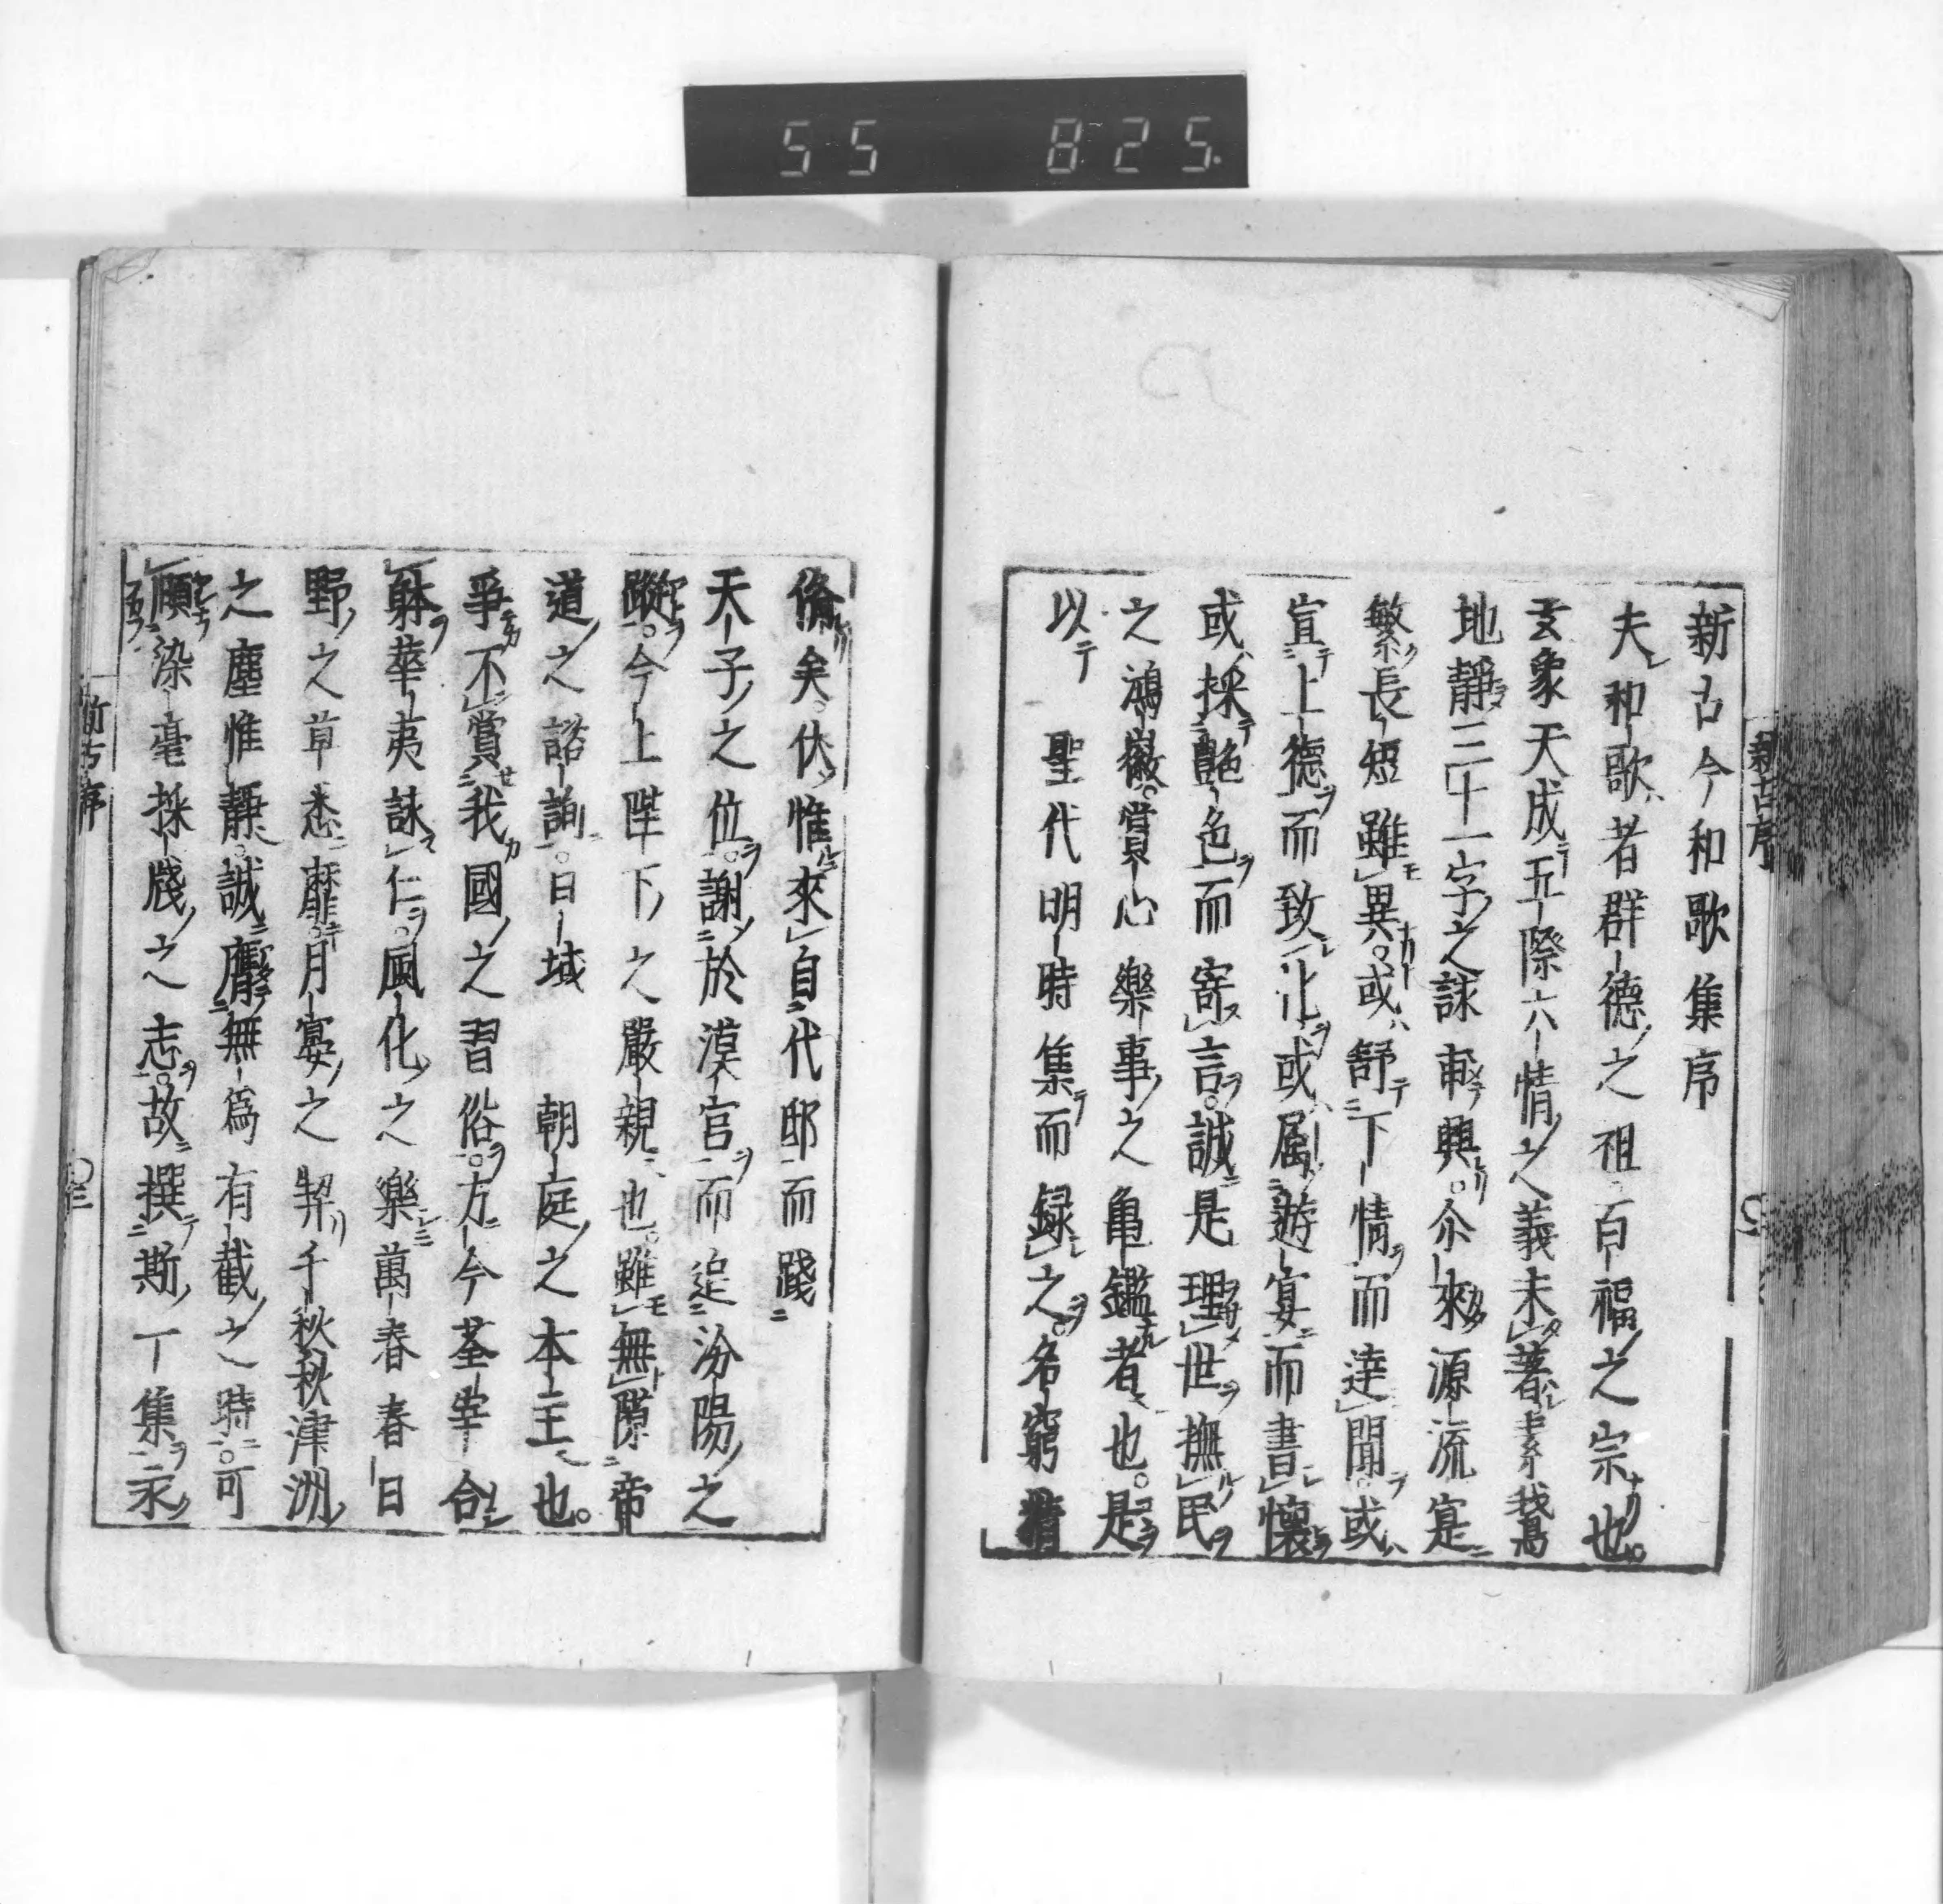 55 825
新古今和歌集序
夫和歌者群德之祖百福之宗也
玄象天成五際六情之義未著素鵞
地靜三十一字之詠甫興尒來源流寔
繁長短雖異或舒下情而達聞或
宣上德而致化或属遊宴而書懷
或採艶色而寄言誠是理世撫民
之鴻徽賞心樂事之亀鑑者也是
以聖代明時集而録之各窮精
新古序
俻矣伏惟來自代邸而踐
天子之位謝於漠官而追汾陽之
蹤今上陛下之嚴親也雖無隙帝
道之諮詢日域朝庭之本主也
爭不賞我國之習俗方今荃宰合
躰華夷詠仁風化之樂萬春春日
野之草悉靡月宴之契千秋秋津洲
之塵惟静誠膺無為有截之時可
頤染毫採牋之志故撰斯一集永
新古序